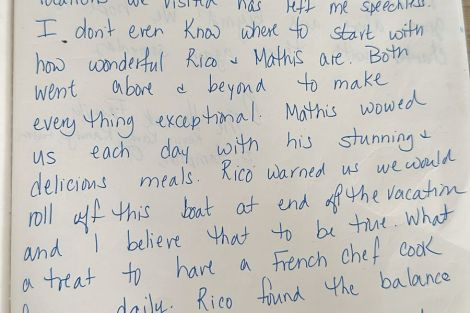 locations we visited has left me speechless.
I don't even know where to start with
how wonderful Rico & Mathis are. Both
went above & beyond to make
everything exceptional. Mathis wowed
us each day with his stunning &
delicious meals. Rico warned us we would
roll off this boat at end of the vacation
and I believe that to be true. What
a treat to have a French chef cook
daily. Rico found the balance